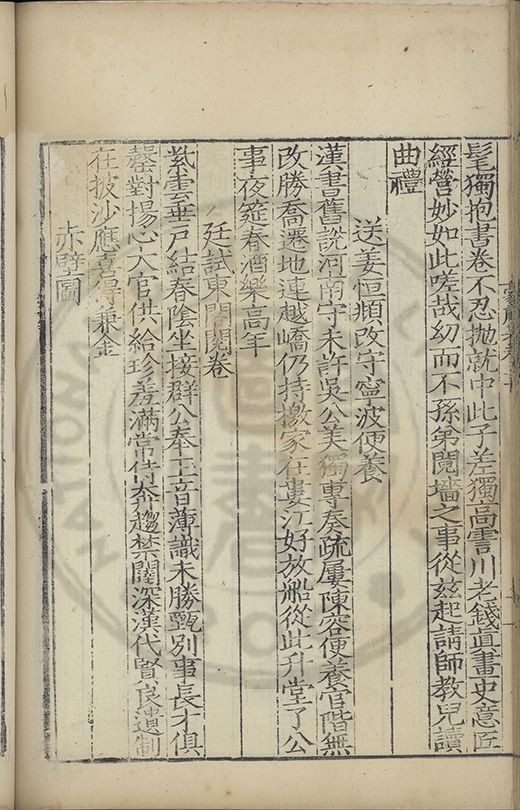 髦獨抱書卷不忍拋就中此子差獨高霅川老錢真畫史意匠
經營妙如此嗟哉幼而不孫弟鬩墻之事從兹起請師教兒讀
曲禮
送姜恒頫改守寧波便養
漢書舊說河南守未許吳公美獨專奏疏屢陳容便養官階無
改勝喬遷地連越嶠仍持檄家在婁江好放船從此升堂了公
事夜筵春酒樂高年
廷試東閣閱卷
紫雲垂戶結春陰坐接群公奉玉音薄識未勝甄別事長才俱
罄對揚心大官供給珍羞滿常侍奔趨禁闥深漢代賢良遺制
在披沙應喜得兼金
赤壁圖